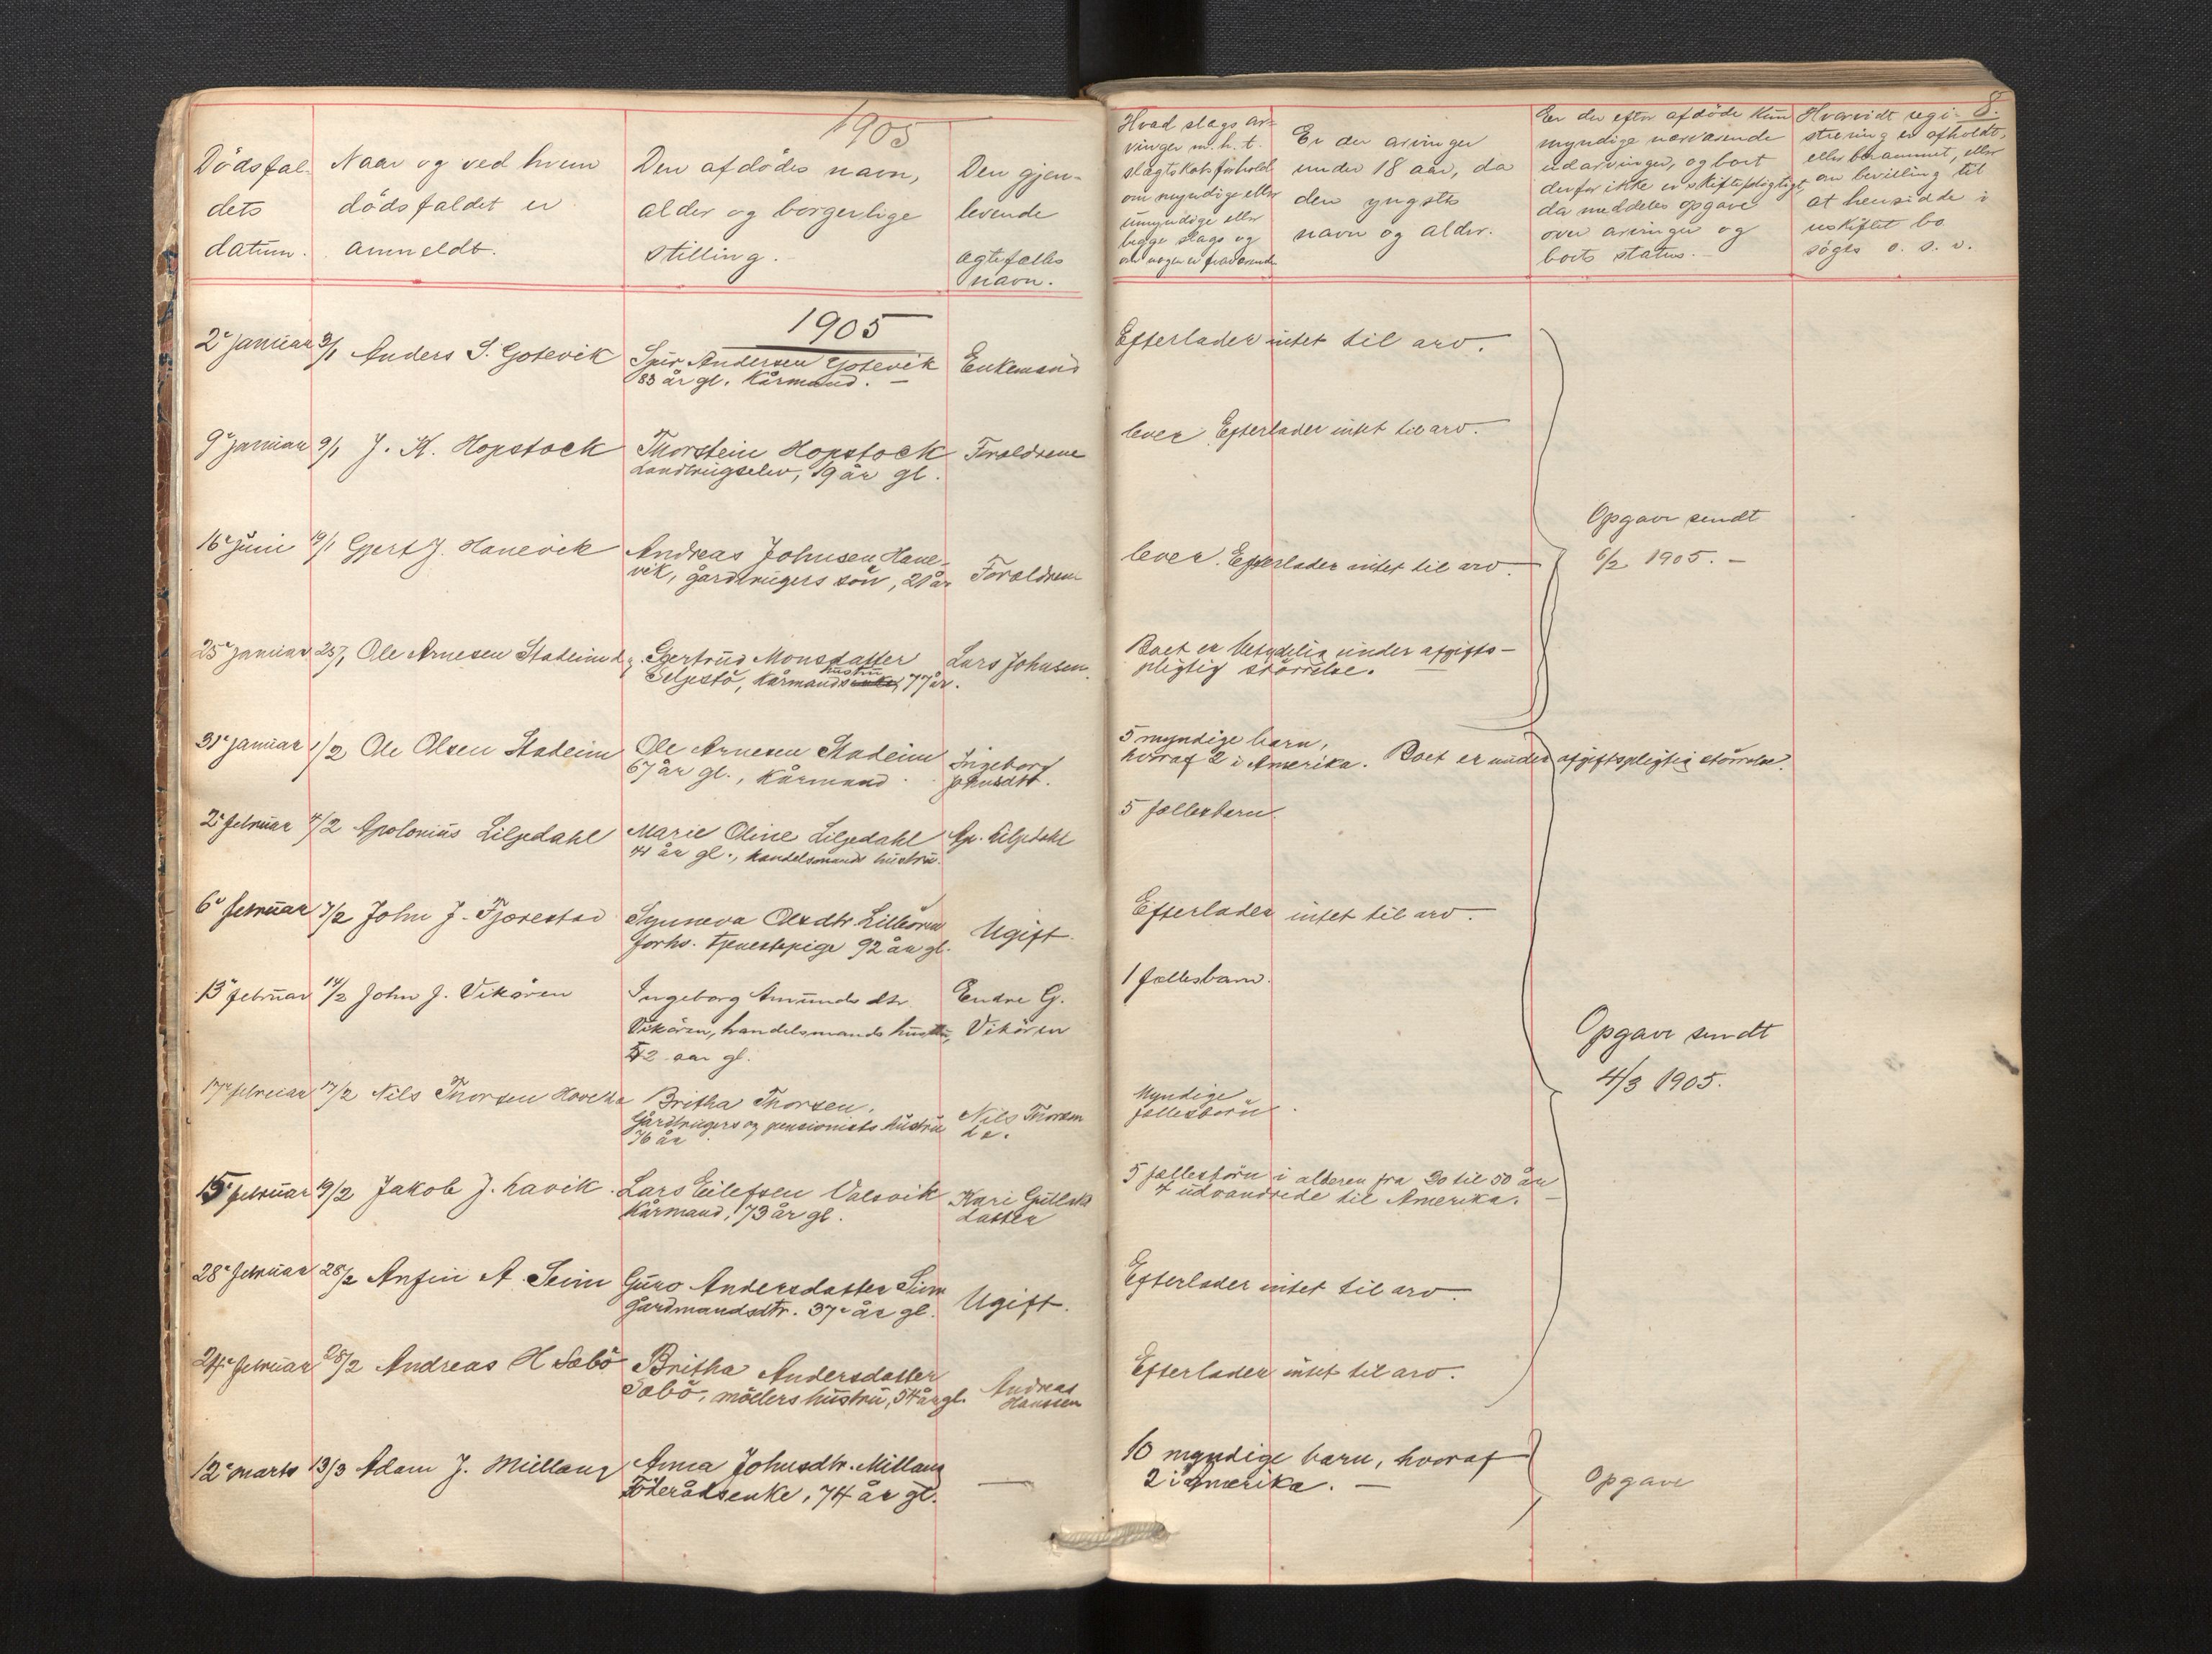 1905
8.
Dödsfal-
dets
datum.
Naar og ved hvem
dödsfaldet er
anmeldt.
Den afdödes navn,
alder og borgerlige
stilling.
Den gjen-
levende
ægtefælles
navn.
Hvad slags ar-
vinger m.h.t.
slægtskabsforhold
om myndige eller
umyndige eller
begge slags og
om nogen er fraværende
Er der arvinger
under 18 aar, da
den yngstes
navn og alder.
Er der efter afdöde kun
myndige nærværende
udarvinger, og boet
derfor ikke er skiftepligtigt,
da meddeles opgave
over arvinger og
boets status.
Hvorvidt regi-
strering er afholdt,
eller berammet, eller
om bevilling til
at hensidde i
uskiftet bo
söges o. s. v.
1905
2e januar 3/1 Anders S. Gotevik
Sjur Andersen Gotevik
83 år gl. Kårmand. —
Enkemand
Efterlader intet til arv.
9e januar 9/1 J. K. Hopstock
Thorstein Hopstock
Landbrugselev, 19 år gl.
Forældrene
lever. Efterlader intet til arv.
16e juni 19/1 Gjert J. Hanevik
Andreas Johnsen Hane-
vik, gårdbrugers sön, 21 år
Forældrene
lever. Efterlader intet til arv.
Opgave sendt
6/2 1905. —
25e januar 25/1 Ole Arnesen Stadeim
Gjertrud Monsdatter
hustru
Seljestö, Kårmands enke, 77 år.
Lars Johnsen.
Boet er betydelig under afgifts-
pligtig störrelse.
31e januar 1/2 Ole Olsen Stadeim
Ole Arnesen Stadeim
67 år gl., Kårmand.
Ingeborg
Johnsdtt.
5 myndige barn,
hvoraf 2 i Amerika. Boet er under afgiftspligtig störrelse.
2e februar 4/2 Apolonius Liljedahl
Marie Oline Liljedahl
44 år gl., handelsmands hustru.
Ap. Liljedahl
5 fællesbarn.
6e februar 7/2 John J. Tjorestad
Synneva Olsdtr. Lilleören
forhv. tjenestepige 92 år gl.
Ugift.
Efterlader intet til arv.
13e februar 14/2 John J. Vikören
Ingeborg Amundsdtr.
Vikören, handelsmands hustru,
42 aar gl.
Endre G.
Vikören
1 fællesbarn.
Opgave sendt
4/3 1905.
17e februar 17/2 Nils Thorsen Hovland
Britha Thorsen,
Gårdbrugers og pensionists hustru
76 år
Nils Thorsen
d. e.
Myndige
fællesbörn.
15e februar 19/2 Jakob J. Lavik.
Lars Eilefsen Valsvik
Kårmand, 73 år gl.
Kari Gutleks
datter
5 fællesbörn i alderen fra 30 til 50 år
4 udvandrede til Amerika. —
28e februar 28/2 Anfin A. Seim
Guro Andersdatter Seim
Gårdmandsdtr. 37 år gl.
Ugift.
Efterlader intet til arv.
24e februar 28/2 Andreas H Sæbö
Britha Andersdatter
Sæbö, möllers hustru, 54 år gl.
Andreas
Hanssen
Efterlader intet til arv.
12e marts 13/3 Adam J. Millang
Anna Johnsdtr. Millang
Föderådsenke, 74 år gl.
—
10 myndige barn, hvoraf
2 i Amerika. —
Opgave